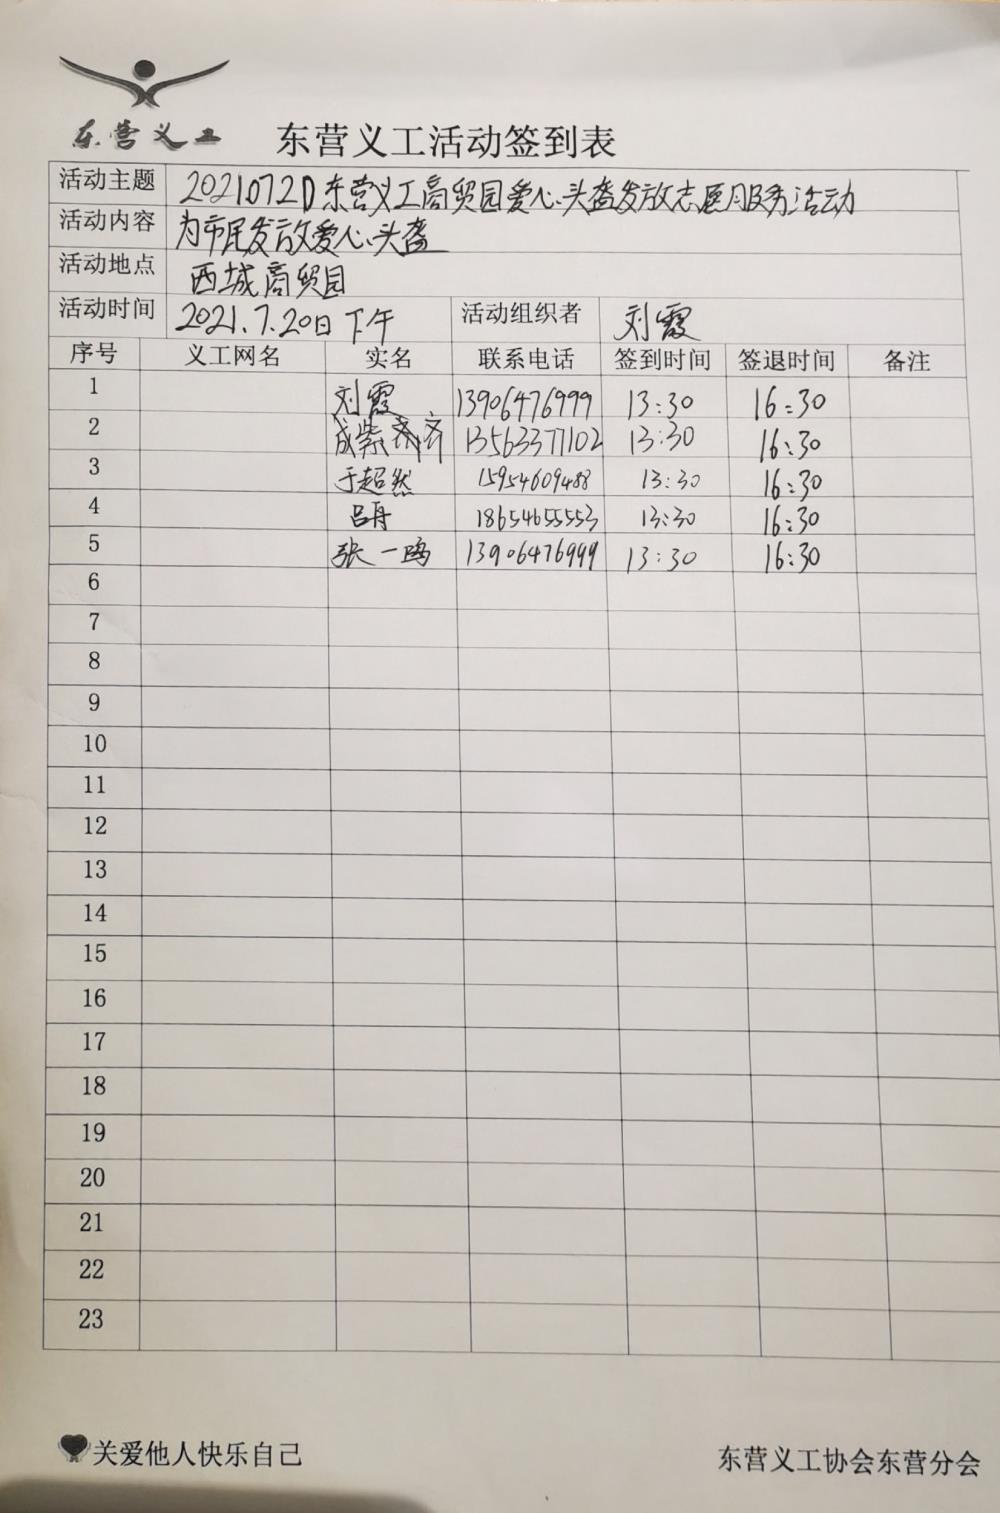 东营义工
东营义工活动签到表
活动主题 20210720东营义工商贸园爱心头盔发放志愿服务活动
活动内容 为市民发放爱心头盔
活动地点 西城商贸园
活动时间 2021.7.20日下午 活动组织者 刘霞
序号 义工网名 实名 联系电话 签到时间 签退时间 备注
1 刘霞 13906476999 13:30 16:30
2 成紫齐 13563377102 13:30 16:30
3 于超然 15954609488 13:30 16:30
4 吕丹 18654655553 13:30 16:30
5 张一鸣 13906476999 13:30 16:30
6
7
8
9
10
11
12
13
14
15
16
17
18
19
20
21
22
23
关爱他人快乐自己
东营义工协会东营分会